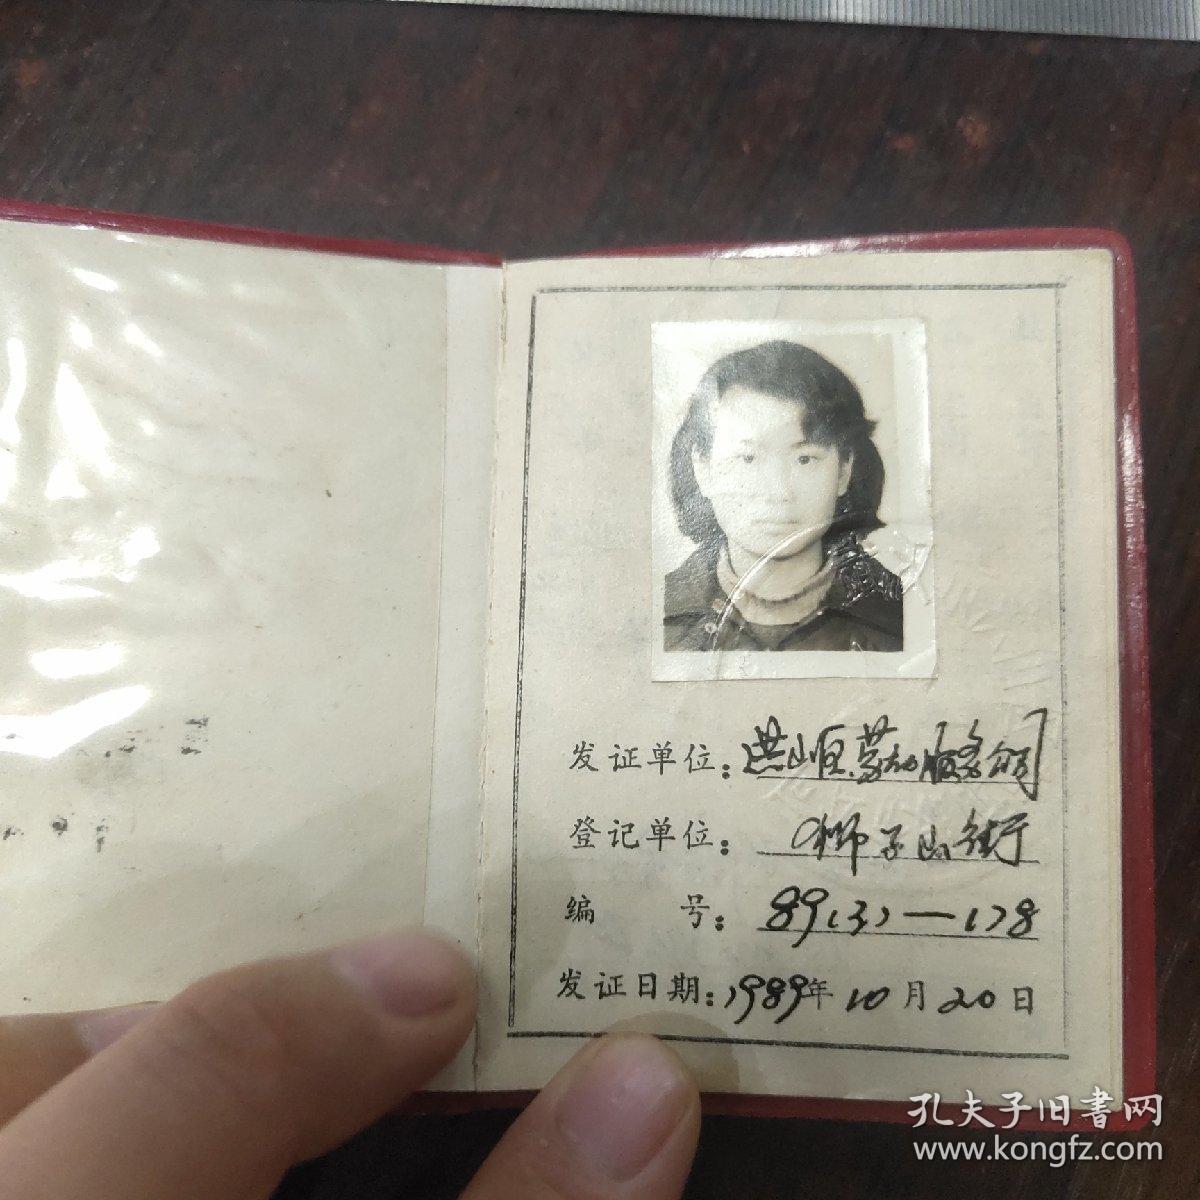 发证单位：洪山区劳动服务公司
登记单位：狮子山街
编 号：89(3)—178
发证日期：1989年10月20日
孔夫子旧書网
www.kongfz.com